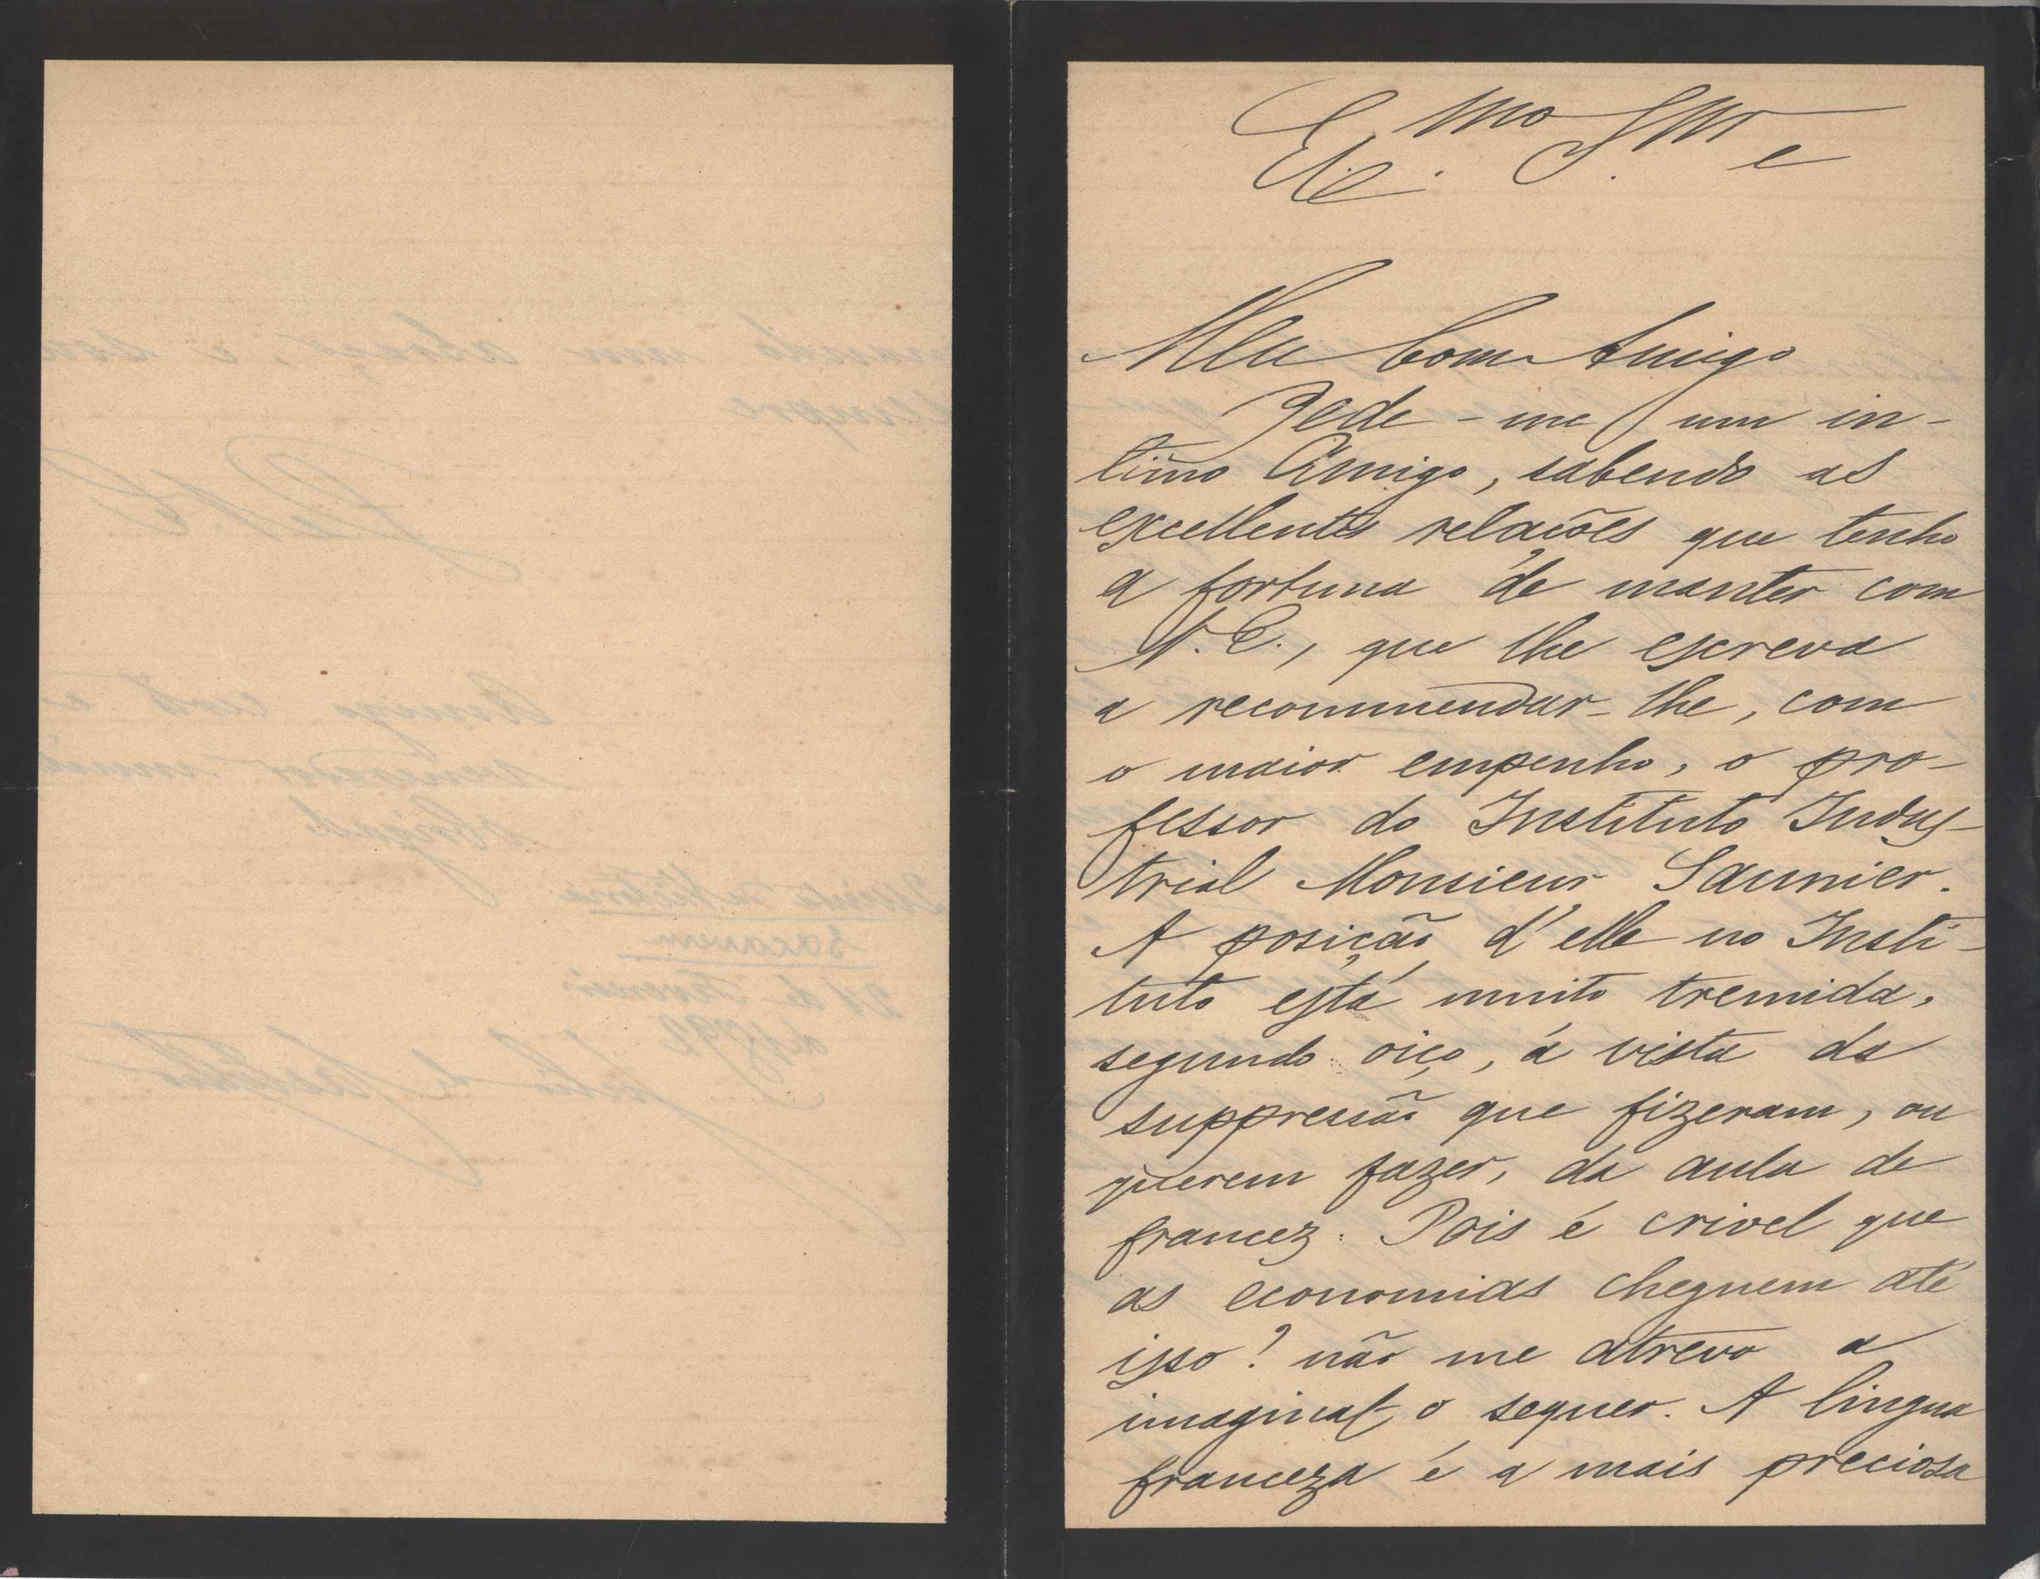 Ex.mo Snr e
Meu bom Amigo
Pede-me um in-
timo Amigo, sabendo as
excellentes relações que tenho
a fortuna de manter com
V. E., que lhe escreva
a recommendar-lhe, com
o maior empenho, o pro-
fessor do Instituto Indus-
trial Monsieur Saunier.
A posição d'elle no Insti-
tuto está muito tremida,
segundo oiço, á vista da
suppressão que fizeram, ou
querem fazer, da aula de
francez. Pois é crivel que
as economias cheguem até
isso? não me atrevo a
imaginal-o sequer. A lingua
franceza é a mais preciosa